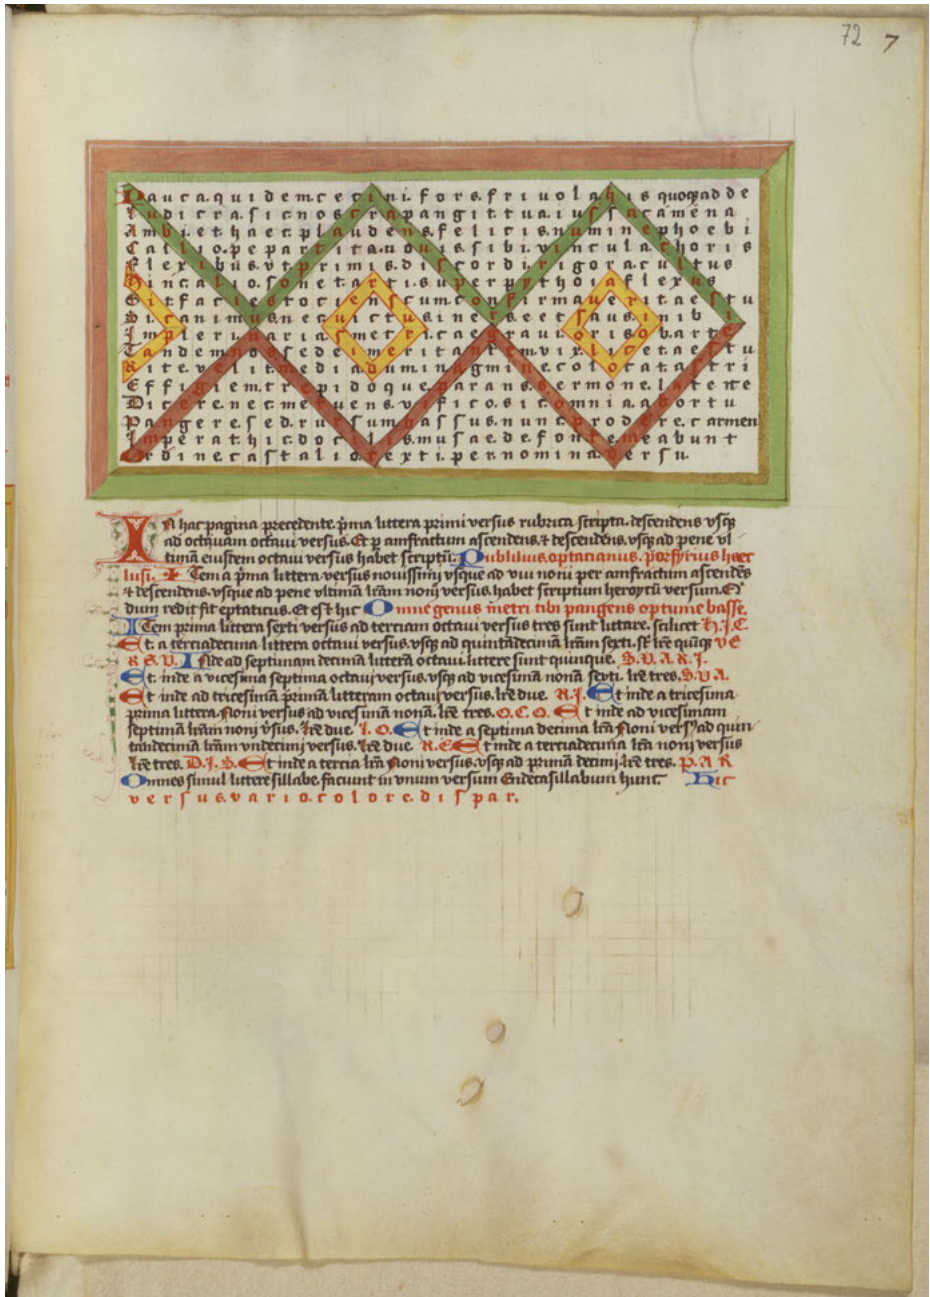 72 7
Pauca.quidem cecini.fors.frivola his quoqz ad de
Ludicra.sic nos cra pangit.tua.iussa camena
Ambi.et haec.plaudens.felicis.numine phoebi
Callio.pe partita.vduis.sibi.vincula.thoris
Flexibus.vt primis.discordi.rigora.cultus
hinc alio.sonet.arti.super pythoia flexus
Sit facies tociens cum confirma verita est u
Si.canimus nec victus iners eet saus.inib
Impleri.naria smetri.cae gravi oriso b.arte
Tandem nos sede i merita ntem.vix.licet.aetu
Rite.velit.media dum.inagmine.colocata.tri
Effigiem.trepidoque.parans.sermone.latente
Dicere.nec.metuens.vifico.sic.omnia.abortu
Pangere.sed.rursum passus.nunc.prodere.carmen
Imperat.hic.docilis.musae.de.fonte.meabunt
Ordine castalio.texti.per.nomina.versu.
In hac pagina precedente. pma littera primi versus rubrica scripta. descendens vsqz
ad octavam octavi versus. Et p amfractum ascendens. & descendens. vsqz ad pene vl
timā eiusdem octavi versus habet scriptū: Publilius.optacianus.porfyrius haec
lusi. Item a pma littera versus novissimi vsque ad viii noni per amfractum ascendēs
& descendens. vsque ad pene vltimā lram noni versus. habet scriptum heroycū versum. Et
dum redit fit eptaticus. Et est hic Omne genus metri tibi pangens optume basse.
Item prima littera sexti versus ad terciam octavi versus tres sunt litterae. scilicet H.I.C.
Et. a terciadecima littera octavi versus. vsqz ad quintādecimā lram sexti. st lre quiqz VE
R S.V. Inde ad septimam decimā litterā octavi littere sunt quinque. S.V.A.R.I.
Et inde a vicesima septima octavi versus. vsqz ad vicesimā nonā sexti. lre tres. S.V.A.
Et inde ad tricesimā primā litteram octavi versus. lre due. R.I. Et inde a tricesima
prima littera. Noni versus ad vicesimā nonā. lre tres. O.C.O. Et inde ad vicesimam
septimā lram noni vsus. lre due. I.O. Et inde a septima decima lra Noni vers9 ad quin
tādecimā lram vndecimi versus. lre due R.E Et inde a terciadecima lra noni versus
lre tres. D.I.S. Et inde a tercia lra Noni versus. vsqz ad primā decimi. lre tres. P.A.R
Omnes simul littere sillabe. faciunt in vnum versum Endecasillabum hunc. Hic
versus.vario.colore.dispar.